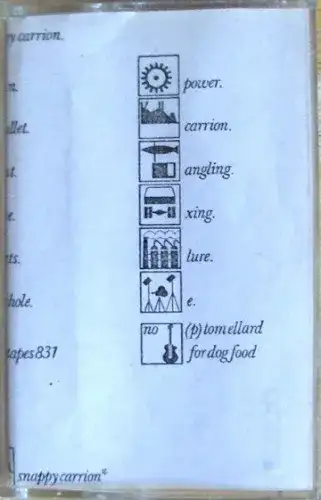 y carrion.
n.
llet.
t.
e.
ts.
hole.
tapes 831
power.
carrion.
angling.
xing.
lure.
e.
no
(p) tom ellard
for dog food
snappy carrion*